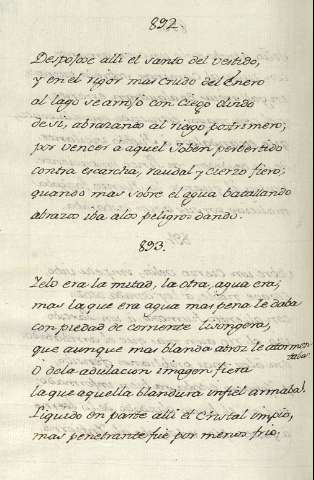 892.
Despojose alli el santo del vestido,
y en el rigor mas crudo del Enero
al lago se arrojo con ciego olvido
de si, abrazando al riesgo postrimero;
por vencer à aquel Joben perbertido
contra escarcha, raudal y cierzo fiero;
quando mas sobre el agua batallando
abrazos iba alos peligros dando.
893.
Yelo era la mitad, la otra agua era;
mas la que era agua mas pena le daba
con piedad de corriente lisongera,
que aunque mas blanda atroz le atormen-
taba.
O dela adulacion imagen fiera
la que aquella blandura infiel armaba!
Liquido en parte alli el cristal impio,
mas penetrante fue por menos frio;